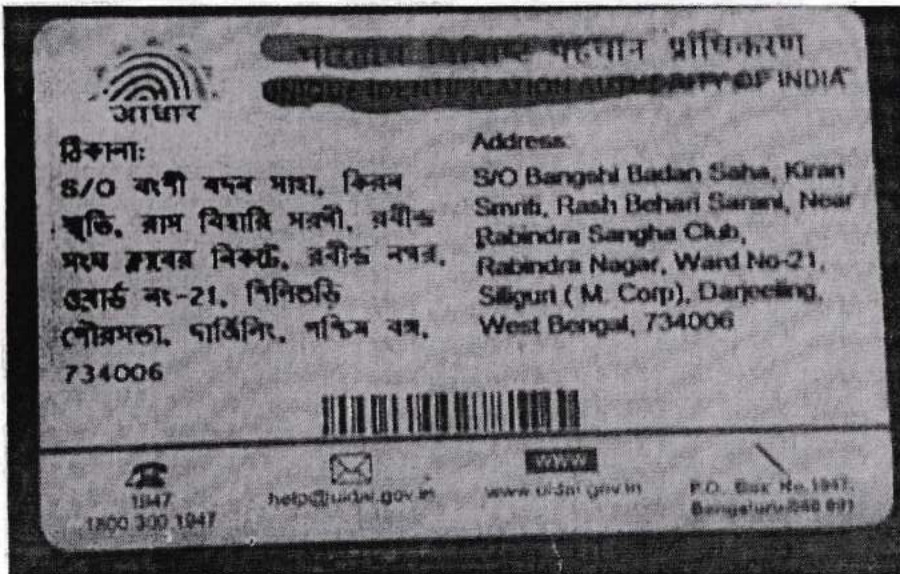 भारतीय विशिष्ट पहचान प्राधिकरण
UNIQUE IDENTIFICATION AUTHORITY OF INDIA
आधार
ঠিকানা:
S/O বংশী বদন সাহা, কিরন
স্মৃতি, রাস বিহারি সরনী, রবীন্দ্র
সংঘ ক্লাবের নিকট, রবীন্দ্র নগর,
ওয়ার্ড নং-21, শিলিগুড়ি
পৌরসভা, দার্জিলিং, পশ্চিম বঙ্গ,
734006
Address:
S/O Bangshi Badan Saha, Kiran
Smriti, Rash Behari Sarani, Near
Rabindra Sangha Club,
Rabindra Nagar, Ward No-21,
Siliguri ( M. Corp), Darjeeling,
West Bengal, 734006
1947
1800 300 1947
help@uidai.gov.in
www
www.uidai.gov.in
P.O. Box No.1947,
Bengaluru-560 001